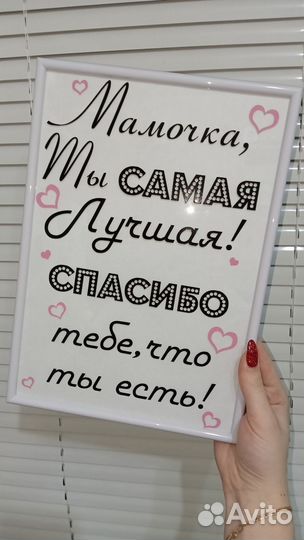 Мамочка,
Ты САМАЯ
Лучшая!
СПАСИБО
тебе, что
ты есть!
Avito